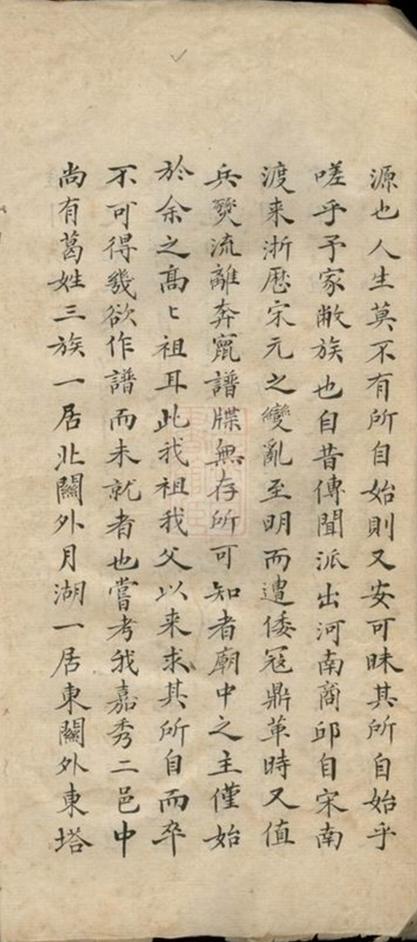 源也人生莫不有所自始則又安可昧其所自始乎
嗟乎予家敝族也自昔傳聞派出河南商邱自宋南
渡来浙歴宋元之變亂至明而遭倭冦鼎革時又值
兵燹流離奔竄譜牒無存所可知者廟中之主僅始
於余之髙〻祖耳此我祖我父以来求其所自而卒
不可得幾欲作譜而未就者也嘗考我嘉秀二邑中
尚有葛姓三族一居北關外月湖一居東關外東塔